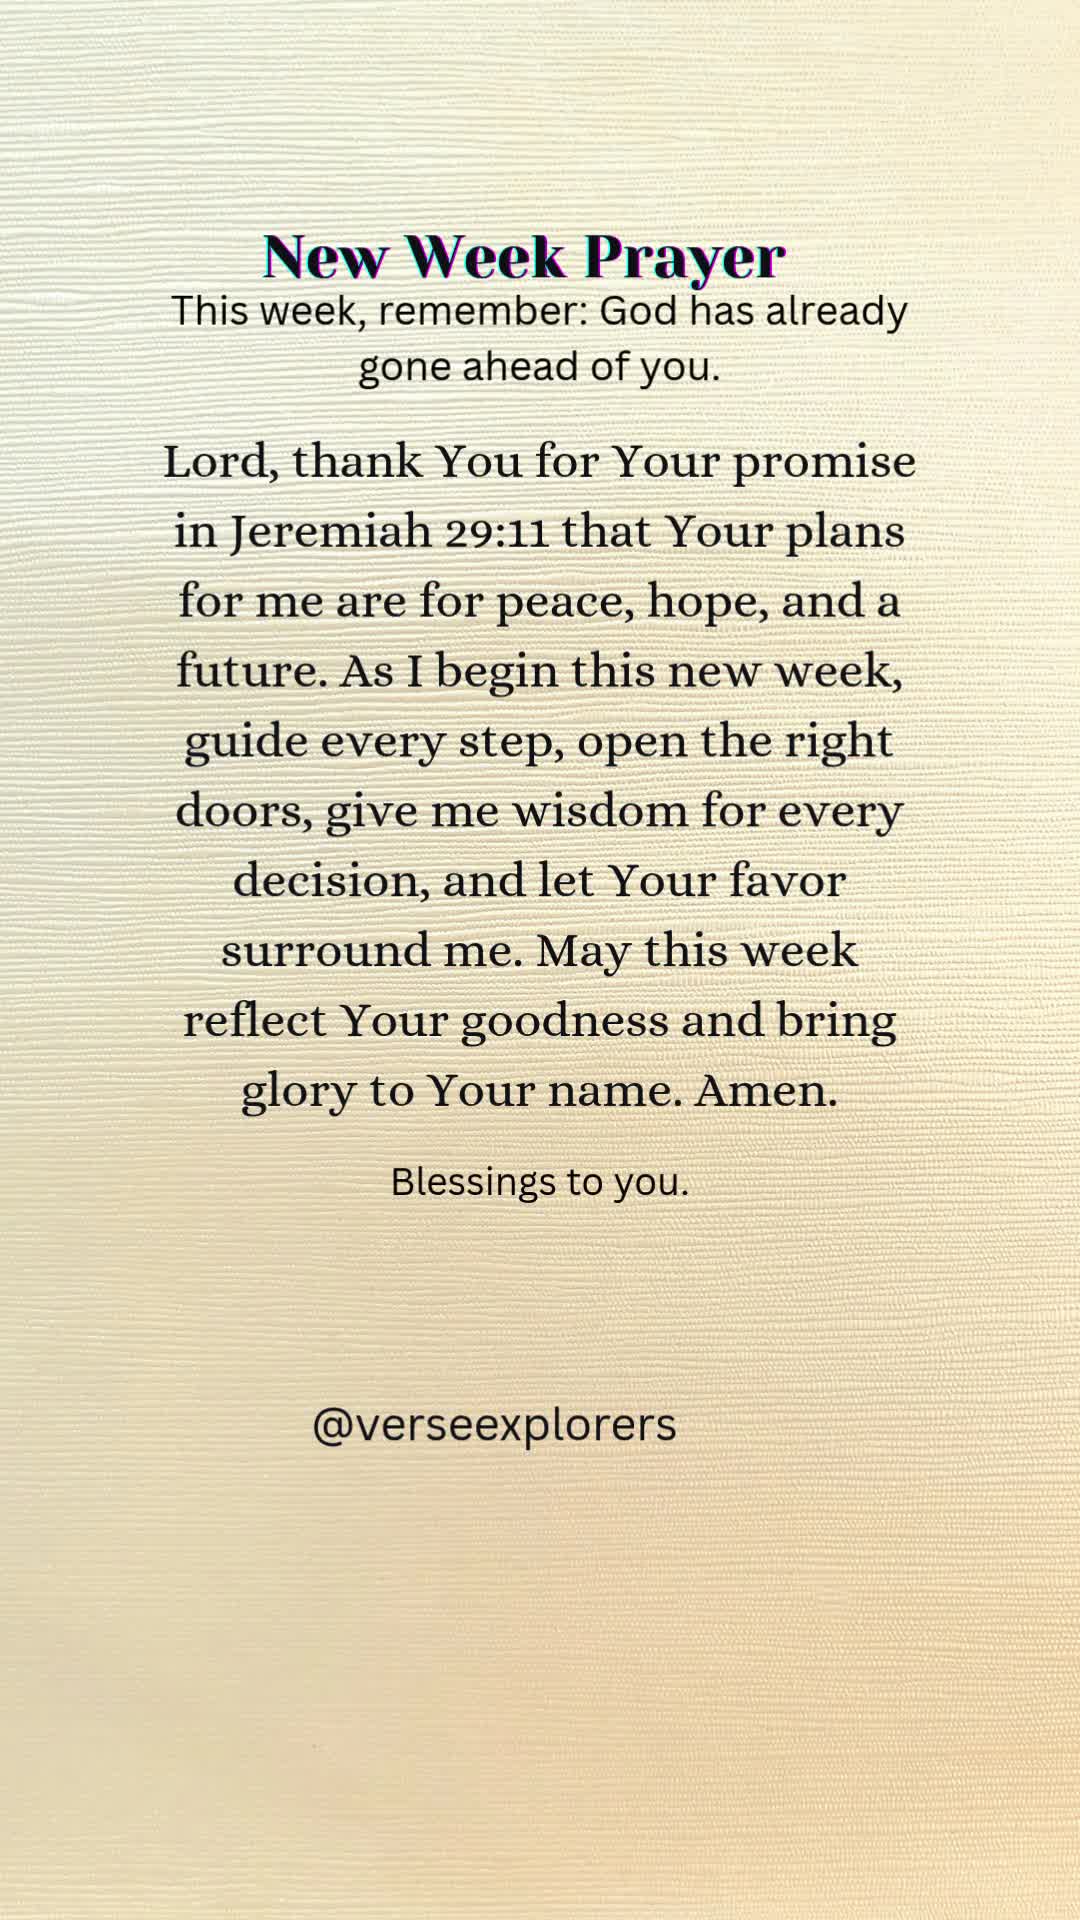 New Week Prayer
This week, remember: God has already
gone ahead of you.
Lord, thank You for Your promise
in Jeremiah 29:11 that Your plans
for me are for peace, hope, and a
future. As I begin this new week,
guide every step, open the right
doors, give me wisdom for every
decision, and let Your favor
surround me. May this week
reflect Your goodness and bring
glory to Your name. Amen.
Blessings to you.
@verseexplorers